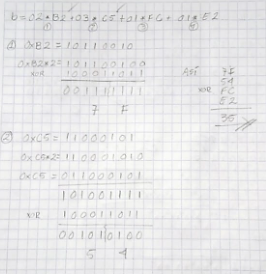 b=02*B2+03*C5+01*FC+01*E2
① ② ③
① 0xB2 = 10110010
0xB2*2= 101100100
XOR 100011011
001111111
7 F
Add 7F
54
XOR FC
E2
35
② 0xC5 = 11000101
0xC5*2= 110001010
0xC5= 011000101
101001111
XOR 100011011
001010100
5 4